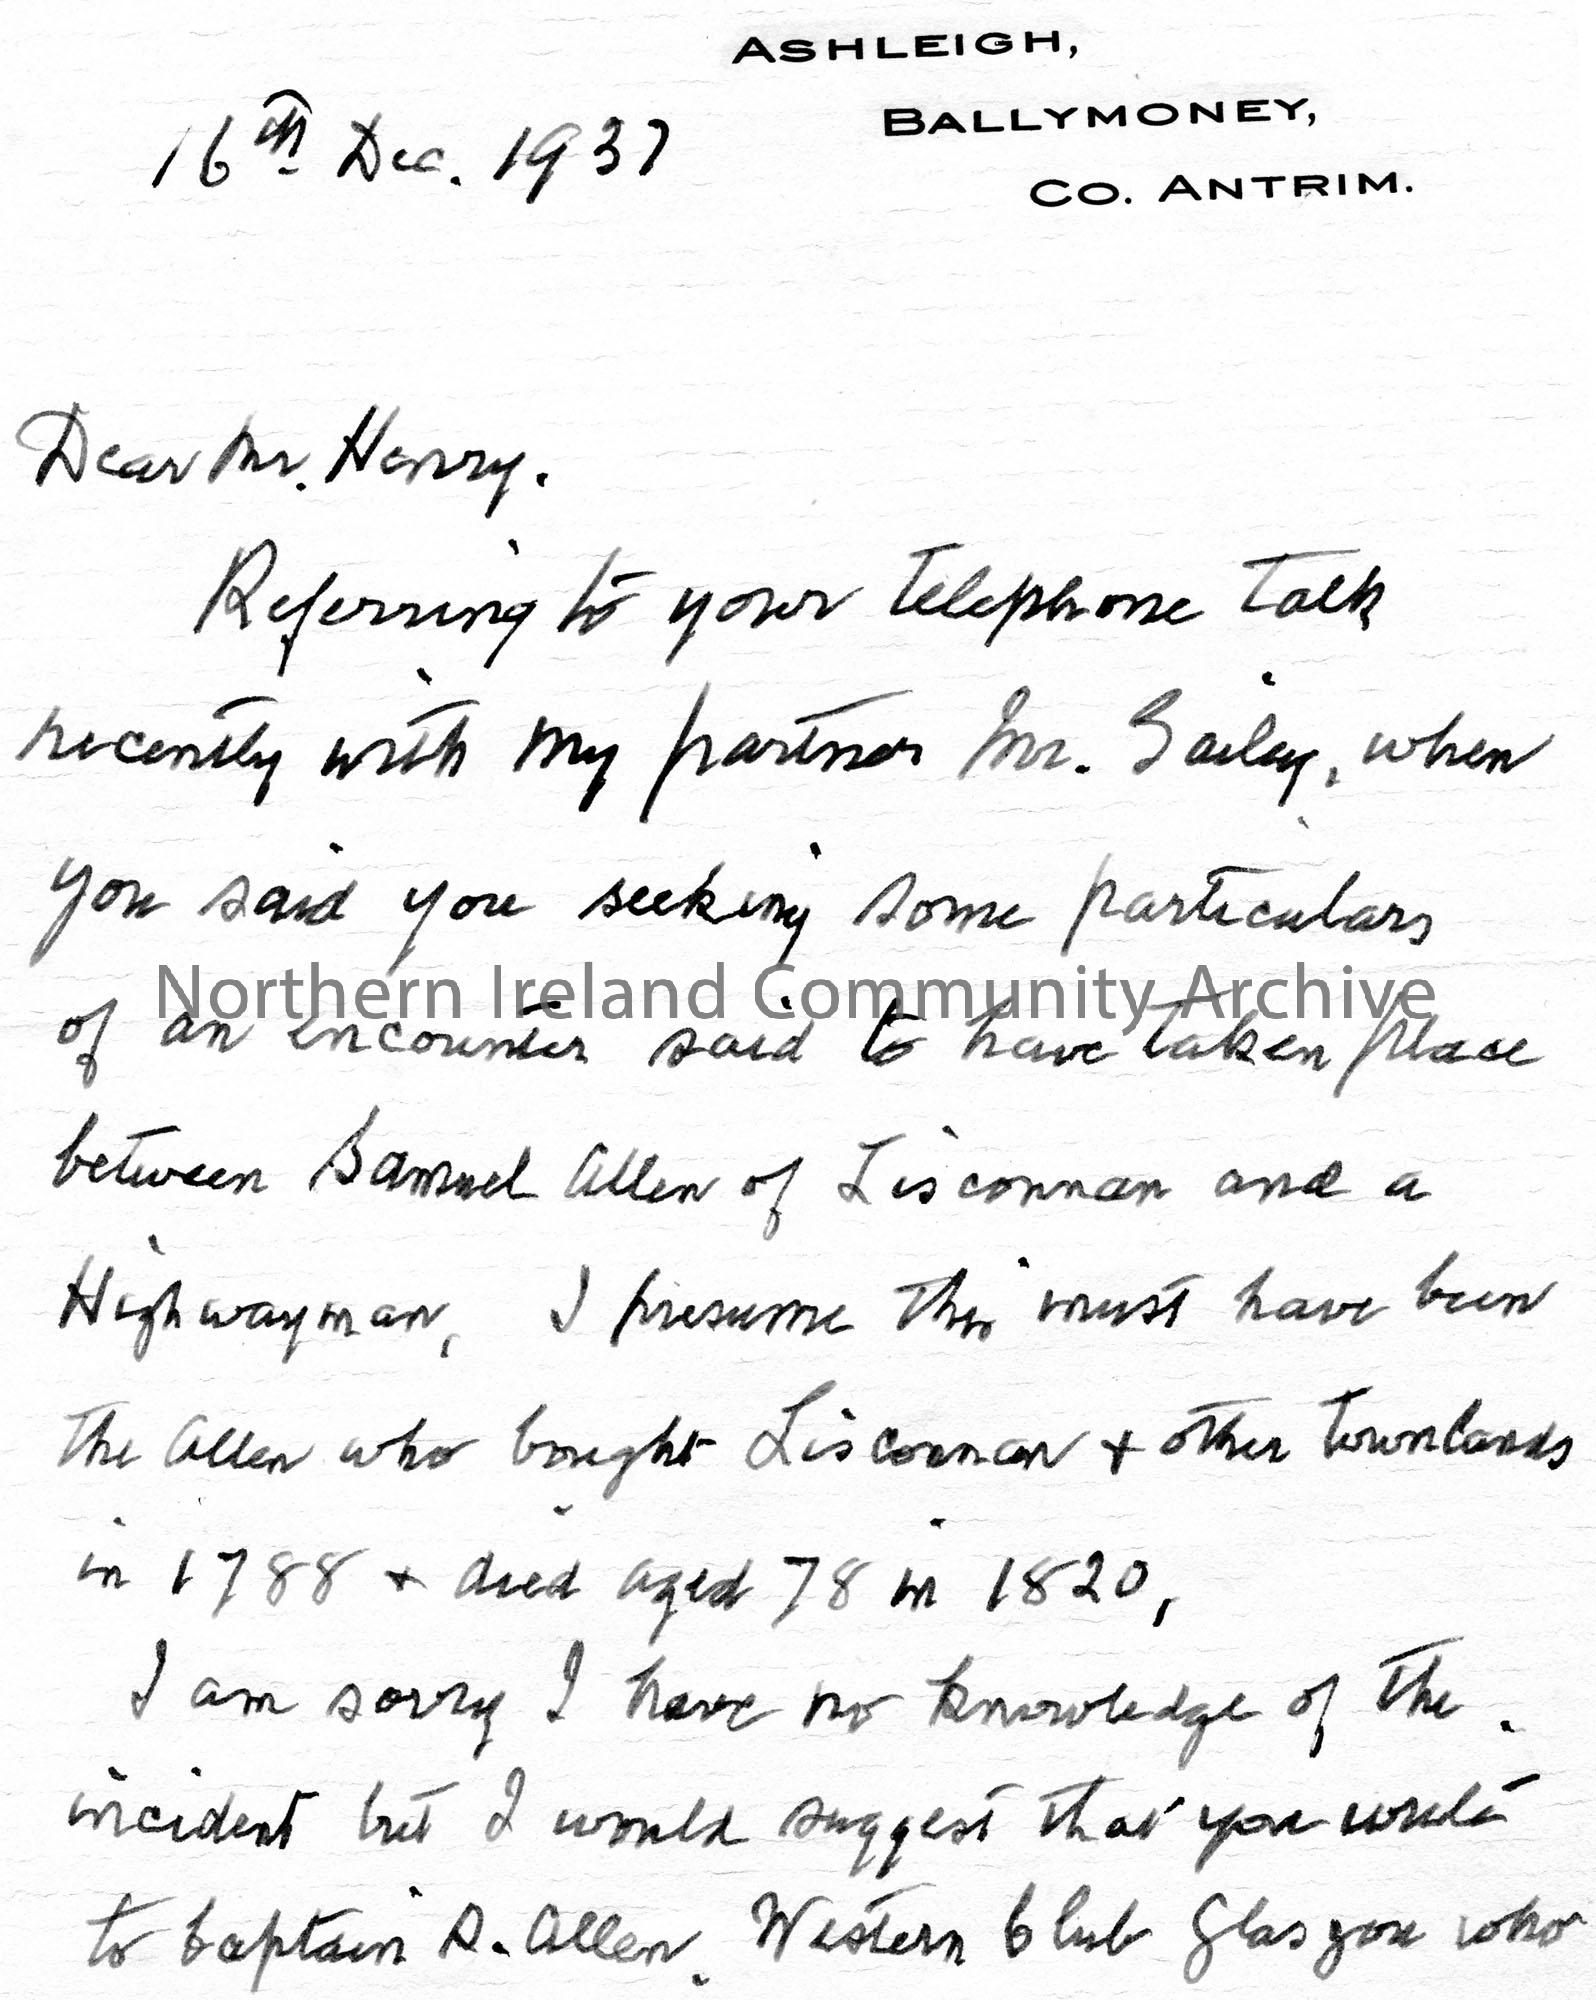 ASHLEIGH,
BALLYMONEY,
CO. ANTRIM.
16th Dec. 1937
Dear Mr. Henry.
Referring to your telephone talk
recently with my partner Mr. Gailey, when
you said you seeking some particulars
Northern Ireland Community Archive
of an encounter said to have taken place
between Samuel Allen of Lisconnan and a
Highwayman, I presume this must have been
the Allen who bought Lisconnan + other townlands
in 1788 + died aged 78 in 1820,
I am sorry I have no knowledge of the
incident but I would suggest that you write
to Captain S. Allen. Western Club Glasgow who